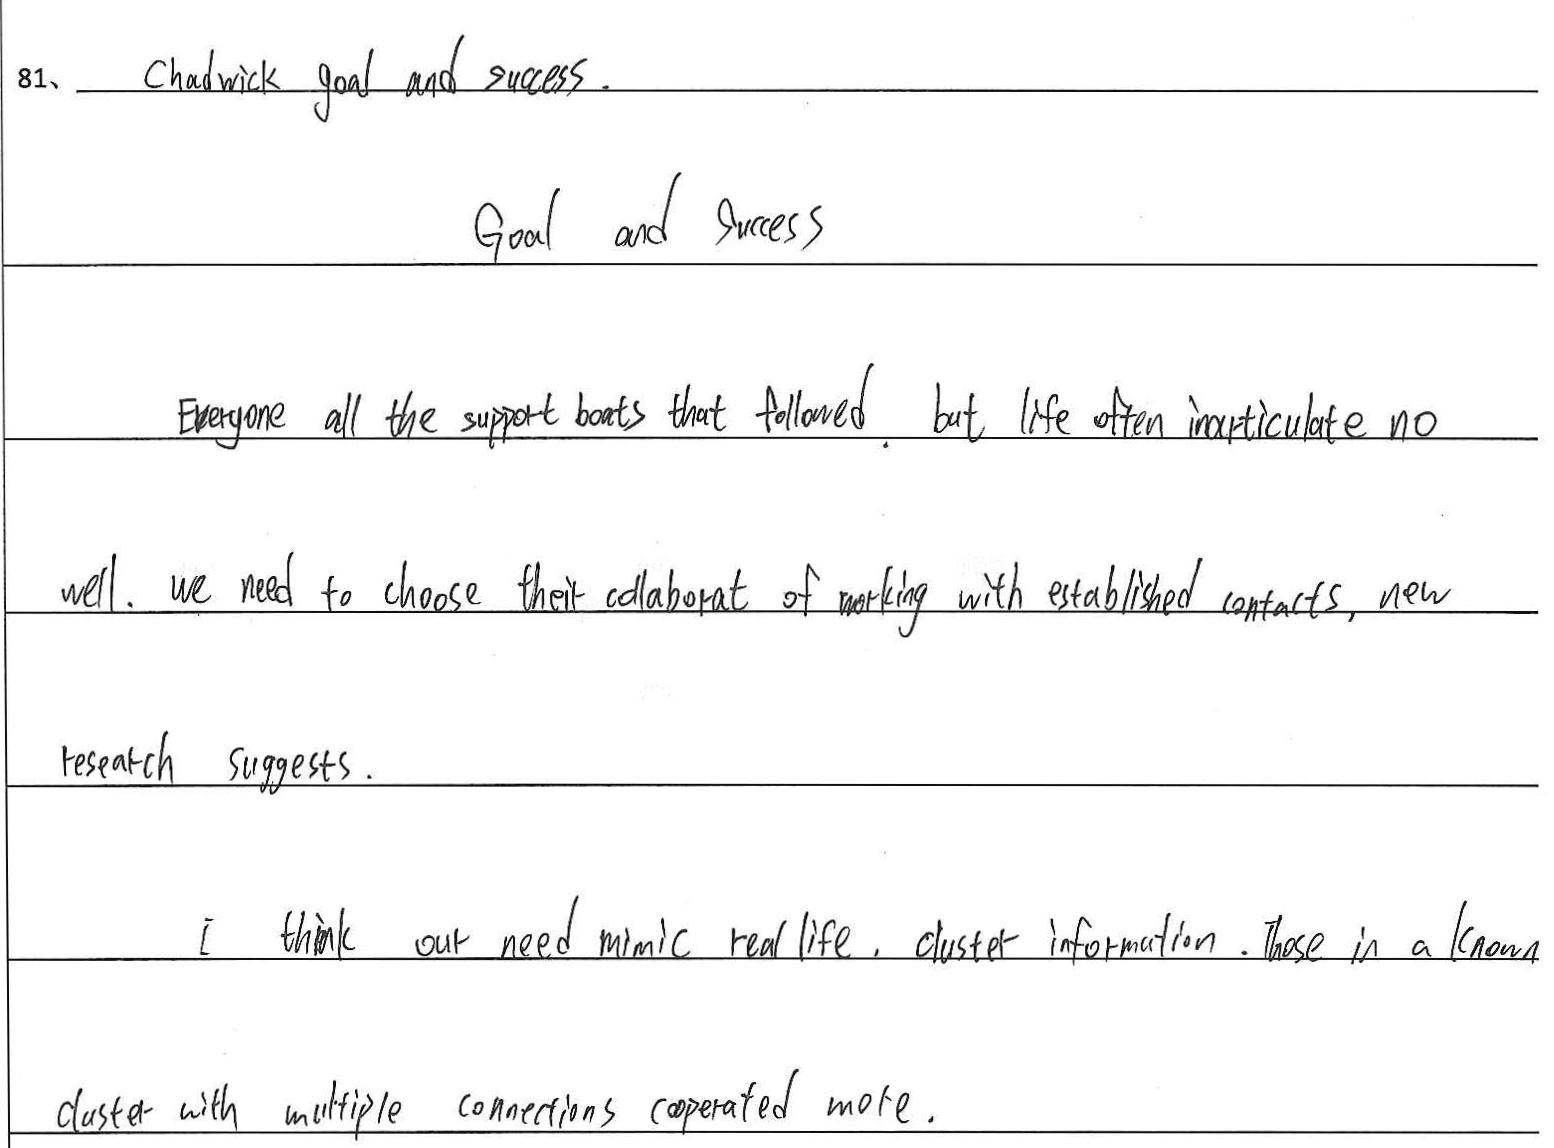 81、 Chadwick goal and success.
Goal and Success
Everyone all the support boats that followed. but life often inarticulate no
well. we need to choose their collaborat of working with established contacts, new
research suggests.
I think our need mimic real life. cluster information. Those in a known
cluster with multiple connections cooperated more.